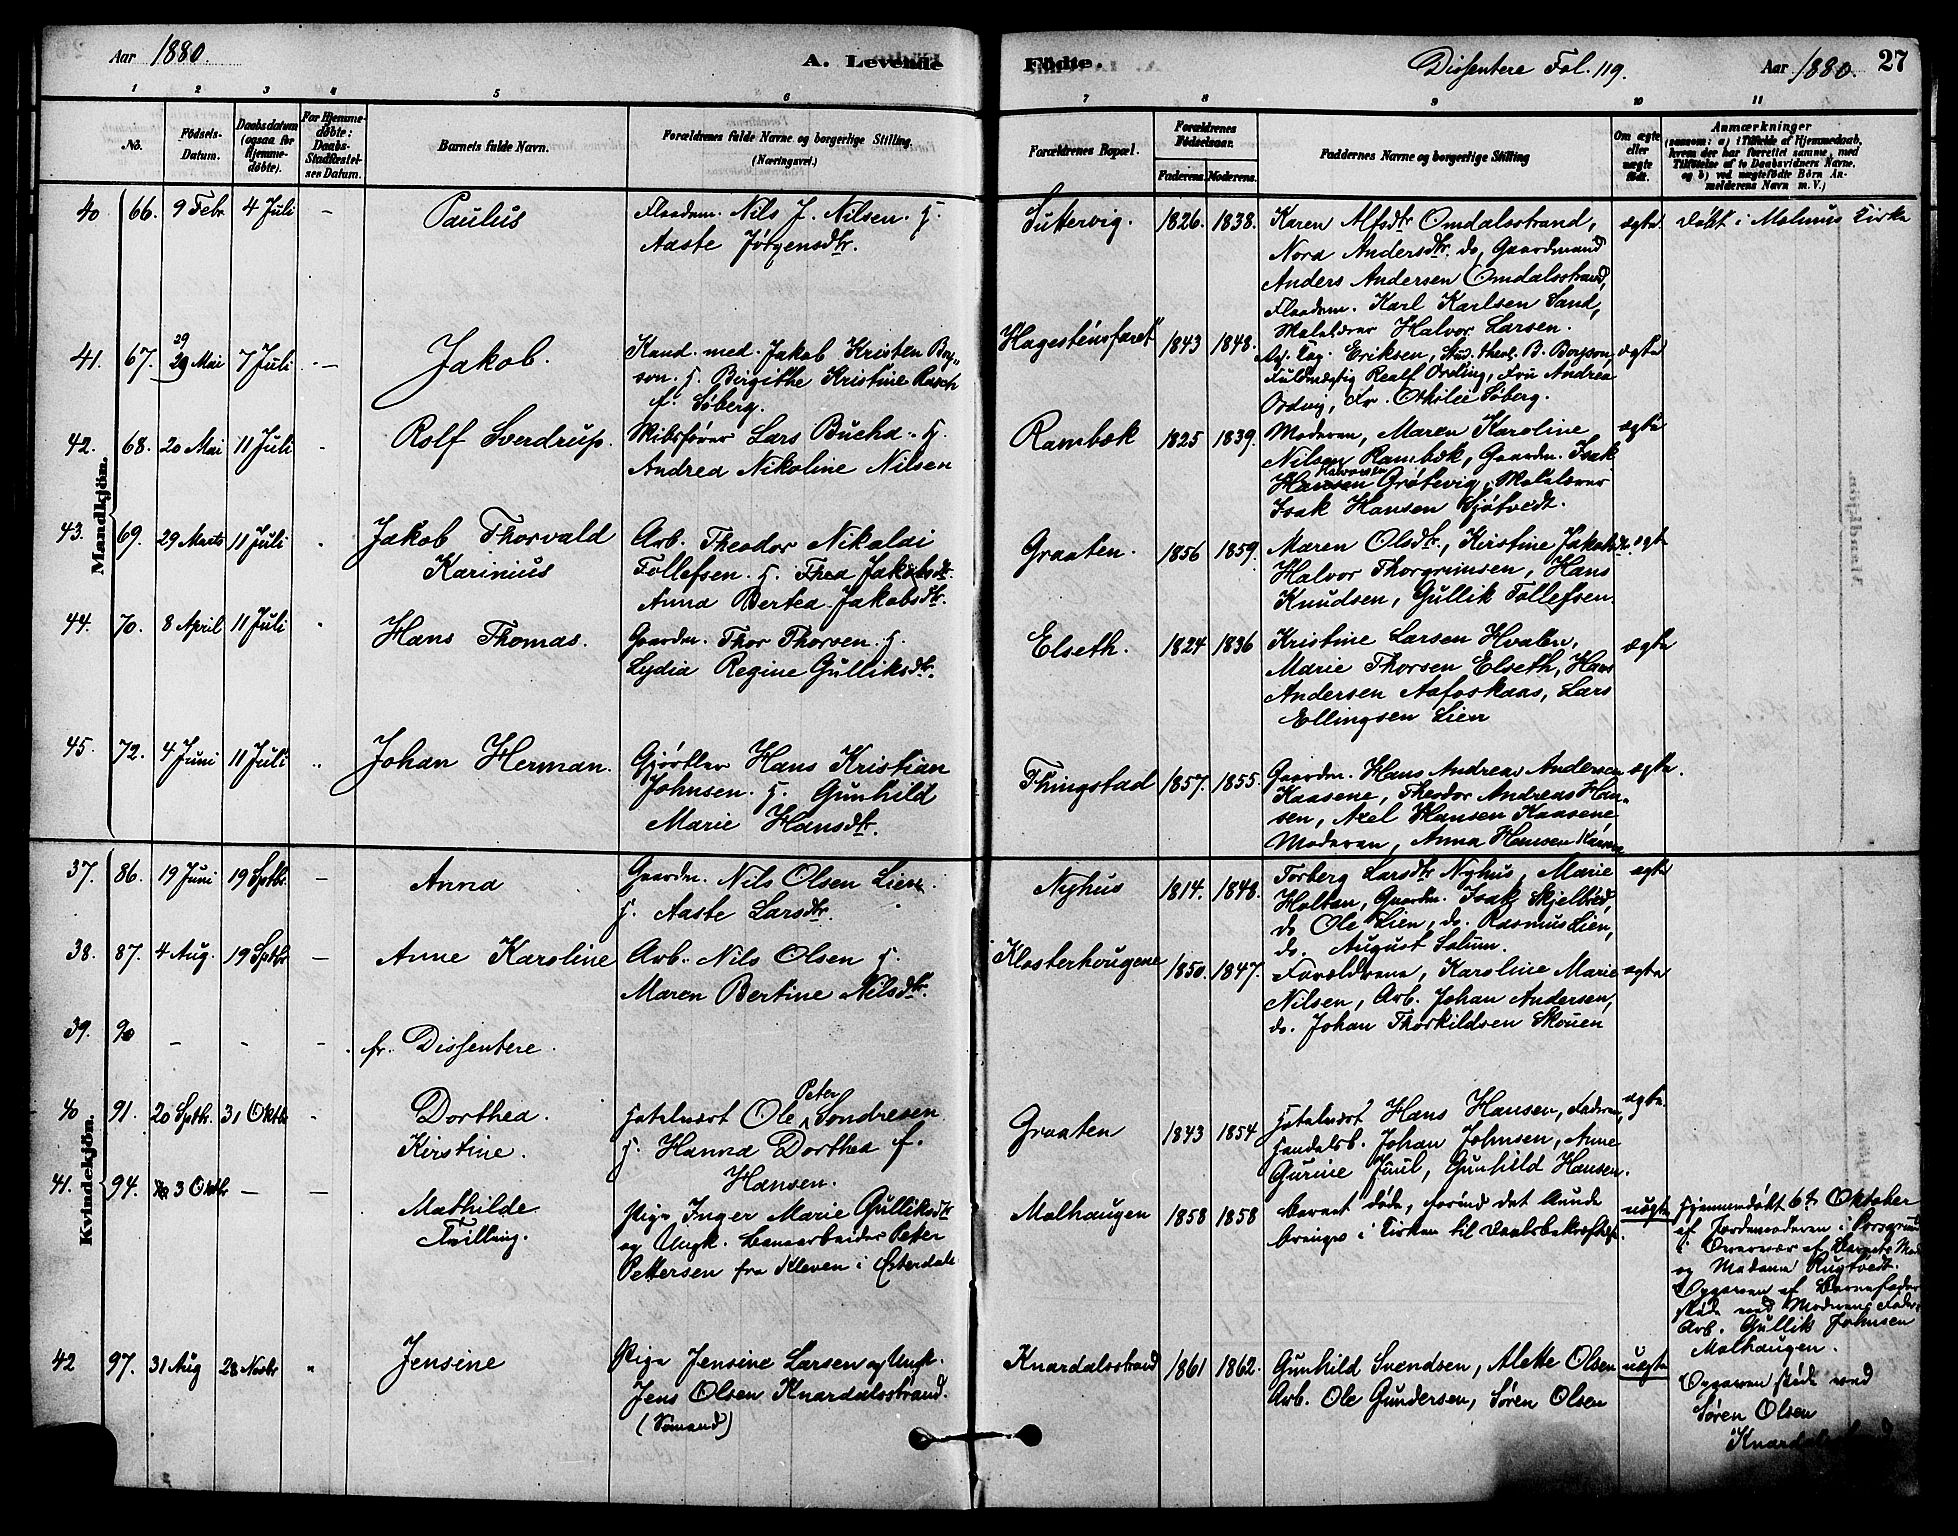 Aar 1880.
A. Levende Födte.
Dissentere Fol. 119.
Aar 1880. 27
1 2 3 4 5 6 7 8 9 10 11
No.
Födsels-Datum.
Daabsdatum (ogsaa for Hjemmedöbte).
For Hjemmedöbte: Daabs-Stadfæstelses Datum.
Barnets fulde Navn.
Forældrenes fulde Navne og borgerlige Stilling. (Næringsvei.)
Forældrenes Bopæl.
Forældrenes Födselsaar.
Faderens. Moderens.
Faddernes Navne og borgerlige Stilling
Om ægte eller uægte födt.
Anmærkninger
(saasom: a) i Tilfælde af Hjemmedaab, hvem der har forrettet samme, med Tilföielse af to Daabsvidners Navne. og b) ved uægtefödte Börn Anmelderens Navn m. V.)
Mandkjön.
40 66. 9 Febr 4 Juli – Paulus
Nils J. Nilsen. H.
Aaste Jörgensdtr.
1826. 1838.
Karen Alfsdtr Omdalsstrand,
Nora Andersdtr. do, Gaardmand
Anders Andersen Omdalsstrand,
Karl Karlsen Sand,
Halvor Larsen.
ægte. Döbt i Melums Kirke
41. 67. 29 29 Mai 7 Juli – Jakob.
Kand. med. Jakob Kristen Borg-
son. H. Birgithe Kristine Rasch
f. Söberg.
1843 1848.
Eriksen, Stud. theol. B. Borgson,
Fuldmægtig Realf Ording, Fru Andrea
Ording, Fr. Othilie Söberg.
ægte
42. 68. 20 Mai 11 Juli - Rolf Sverdrup.
Skibsförer Lars Bucha. H.
Andrea Nikoline Nilsen
Rambæk 1825 1839.
Moderen, Maren Karoline
Nilsen Rambæk, Gaardm. Isak
Halvorsen
Hansen Grötsvig,
Isak Hansen Sjötvedt.
ægte
43. 69. 29 Marts 11 Juli Jakob Thorvald
Karinius
Arb. Theodor Nikolai
Tollefsen. H. Thea Jakobsdtr.
Anna Bertea Jakobsdtr.
Graaten. 1856 1859.
Maren Olsdtr., Kirstine Jakobsdtr.
Halvor Thorgrimsen, Hans
Knudsen, Gullik Tollefsen.
ægte
44. 70. 8 April 11 Juli Hans Thomas.
Gaardm. Thor Thorsen. H.
Lydia Regine Gulliksdtr.
Elseth. 1824 1836
Kristine Larsen Hvalen,
Marie Thorsen Elseth, Hans
Andersen Aafoskaas, Lars
Ellingsen Lien
ægte
45. 72. 4 Juni 11 Juli Johan Herman.
Gjörtler Hans Kristian
Johnsen. H. Gunhild
Marie Hansdtr.
Thingstad 1857. 1855.
Gaardm. Hans Andreas Andersen
Kaasene, Theodor Andreas Han-
sen, Axel Hansen Kaasene
Moderen, Anna Hansen
ægte.
Kvindekjön.
37. 86. 19 Juni 19 Septbr. – Anna
Gaardm. Nils Olsen Lien.
H. Aaste Larsdtr.
Nyhus 1814. 1848.
Torberg Larsdtr Nyhus, Marie
Holtan, Gaardm. Isak Skjelbred,
do Ole Lien, do. Rasmus Lien,
do. August Solum.
ægte
38. 87. 4 Aug. 19 Septbr – Anne Karoline
Arb. Nils Olsen H.
Maren Bertine Nilsdtr.
Klosterhougene 1850. 1847.
Forældrene, Karoline Marie
Nilsen, Arb. Johan Andersen,
do. Johan Thorkildsen Skouen
ægte
39. 90 – – – fr. Dissentere.
40 91. 20 Septbr. 31 Oktbr - Dorthea
Kirstine.
Peter
Ole Sondresen
H. Hanna Dorthea f.
Hansen.
Graaten 1843 1854
Hans Hansen, Faderen,
Johan Johnsen, Anne
Gurine Juul, Gunhild Hansen.
ægte.
41. 94. 3 Oktbr – – Mathilde
Tvilling.
Pige Inger Marie Gulliksdtr
og Ungk. Banearbeider Peter
Pettersen fra Kleven i Österdalen
Molhaugen 1858 1858
Barnet döde, forind det kunde
bringes i Kirken til Daabsbekræftelse.
uægte
Hjemmedöbt 6te Oktober
af Jordemoderen i Porsgrund
i Overvær af Barnets Mod.
og Madame Rugtvedt.
Opgaven af Barnefader
skede ved Moderens Fader
Arb. Gullik Johnsen
Molhaugen.
42 97. 31 Aug 28 Novbr " Jensine
Pige Jensine Larsen og Ungk.
Jens Olsen Knardalsstrand.
(Sömand)
Knardalsstrand 1861 1862.
Gunhild Svendsen, Alette Olsen
Arb. Ole Gundersen, Sören Olsen
uægte
Opgaven skede ved
Sören Olsen
Knardalsstrand